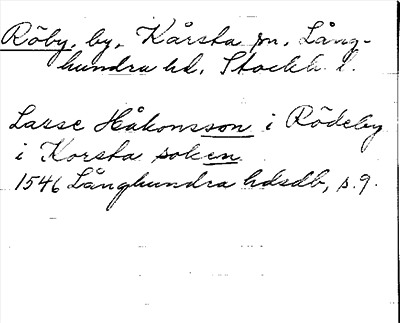 Röby, by, Kårsta sn, Lång-
hundra hd, Stockh. l.
Larse Håkonsson i Rödeby
i Korsta soken
1546 Långhundra hdsdb, s. 9.